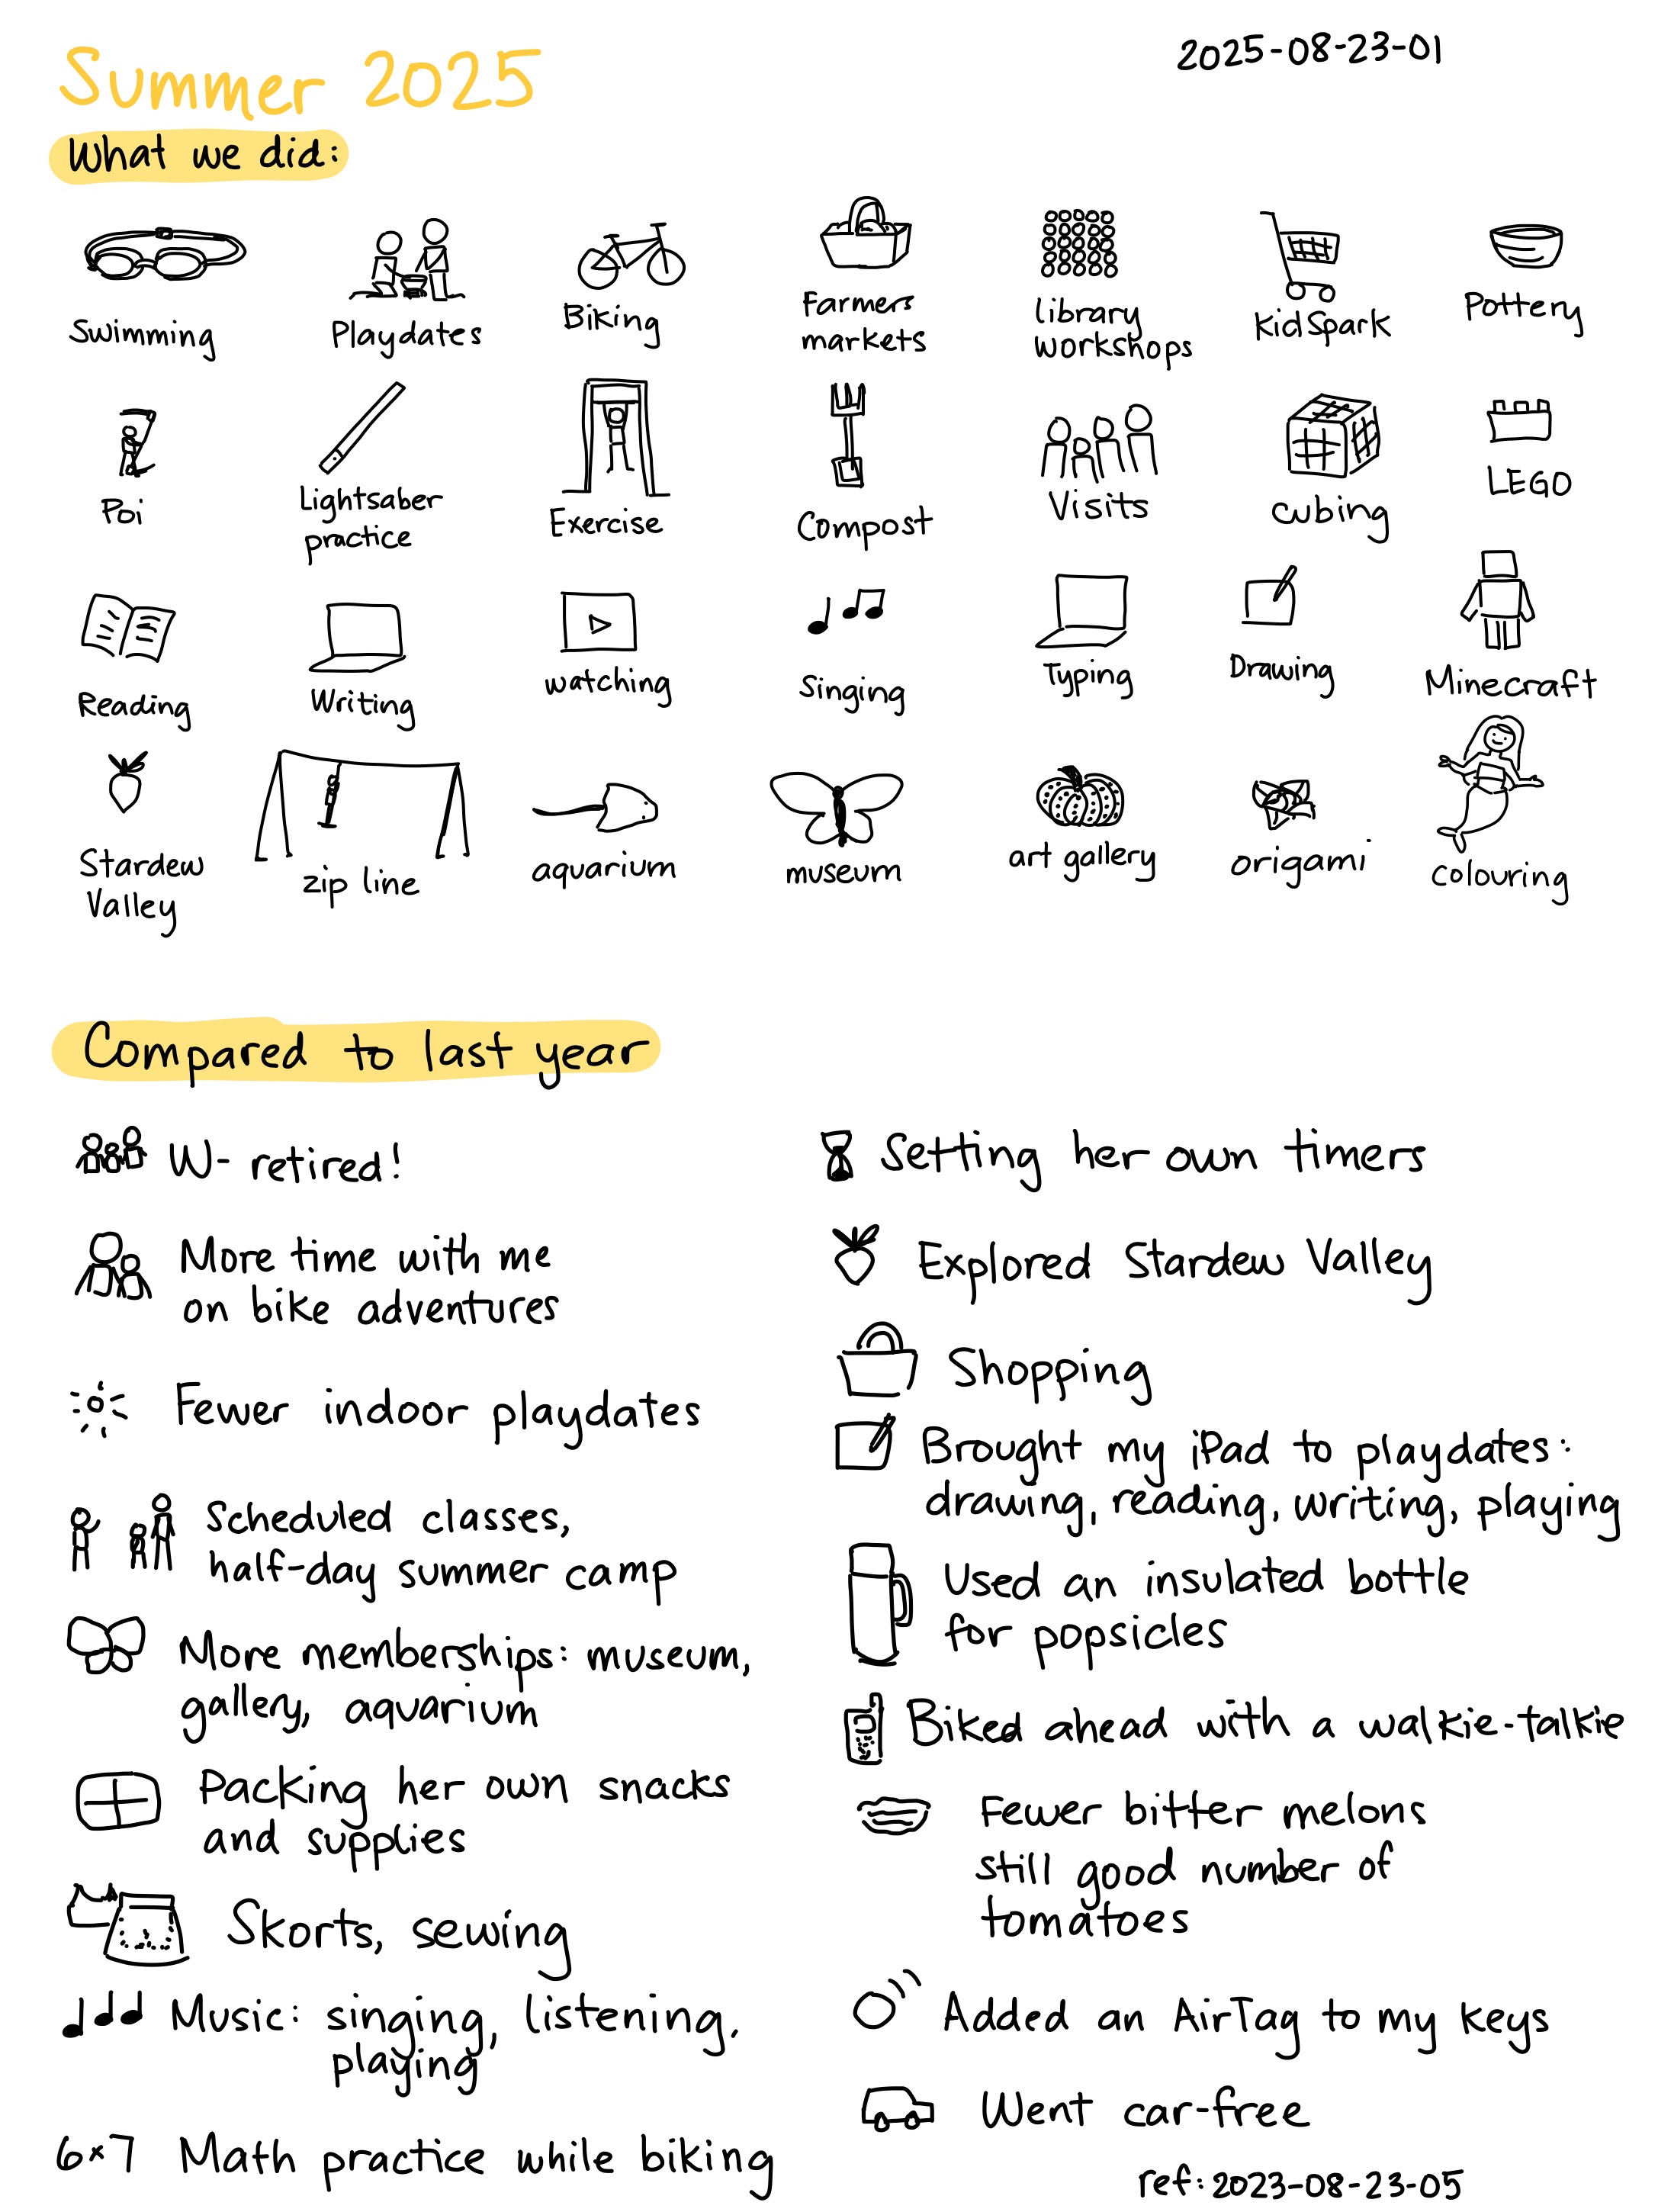 Summer 2025
2025-08-23-01
What we did:
Swimming
Playdates
Biking
Farmers
markets
library
workshops
KidSpark
Pottery
Poi
Lightsaber
practice
Exercise
Compost
Visits
cubing
LEGO
Reading
Writing
watching
Singing
Typing
Drawing
Minecraft
Stardew
Valley
zip line
aquarium
museum
art gallery
origami
colouring
Compared to last year
W- retired!
More time with me
on bike adventures
Fewer indoor playdates
Scheduled classes,
half-day summer camp
More memberships: museum,
gallery, aquarium
Packing her own snacks
and supplies
Skorts, sewing
Music: singing, listening,
playing
6×7 Math practice while biking
Setting her own timers
Explored Stardew Valley
Shopping
Brought my iPad to playdates:
drawing, reading, writing, playing
Used an insulated bottle
for popsicles
Biked ahead with a walkie-talkie
Fewer bitter melons
still good number of
tomatoes
Added an AirTag to my keys
Went car-free
ref: 2023-08-23-05